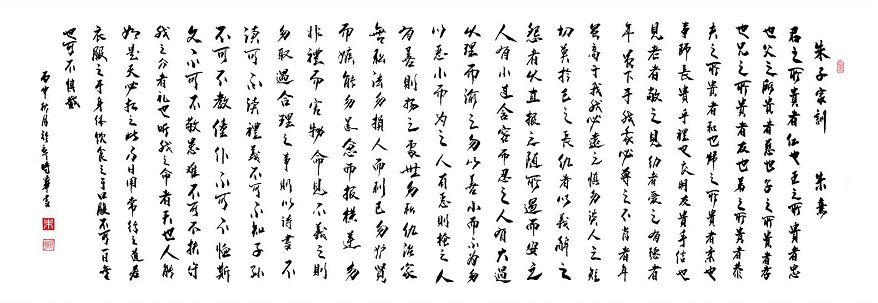 朱子家訓 朱熹
君之所貴者仁也臣之所貴者忠
也父之所貴者慈也子之所貴者孝
也兄之所貴者友也弟之所貴者恭
夫之所貴者和也婦之所貴者柔也
事師長貴乎禮也交朋友貴乎信也
見老者敬之見幼者愛之有德者
年雖下于我我必尊之不肖者年
雖高于我我必遠之慎勿談人之短
切莫矜己之長仇者以義解之
怨者以直报之隨所遇而安之
人有小過含容而忍之人有大過
以理而諭之勿以善小而不為勿
以惡小而為之人有惡則掩之人
有善則揚之處世無私仇治家
無私法勿損人而利己勿妒賢
而嫉能勿逞忿而报横逆勿
非禮而害物命見不義之財
勿取遇合理之事則從詩書不
可不讀禮義不可不知子孫
不可不教僮仆不可不恤斯
文不可不敬患難不可不扶守
我之分者礼也聽我之命者天也人能
如是天必相之此乃日用常行之道若
衣服之于身体飲食之于口腹不可一日無
也可不慎哉
丙申秋月